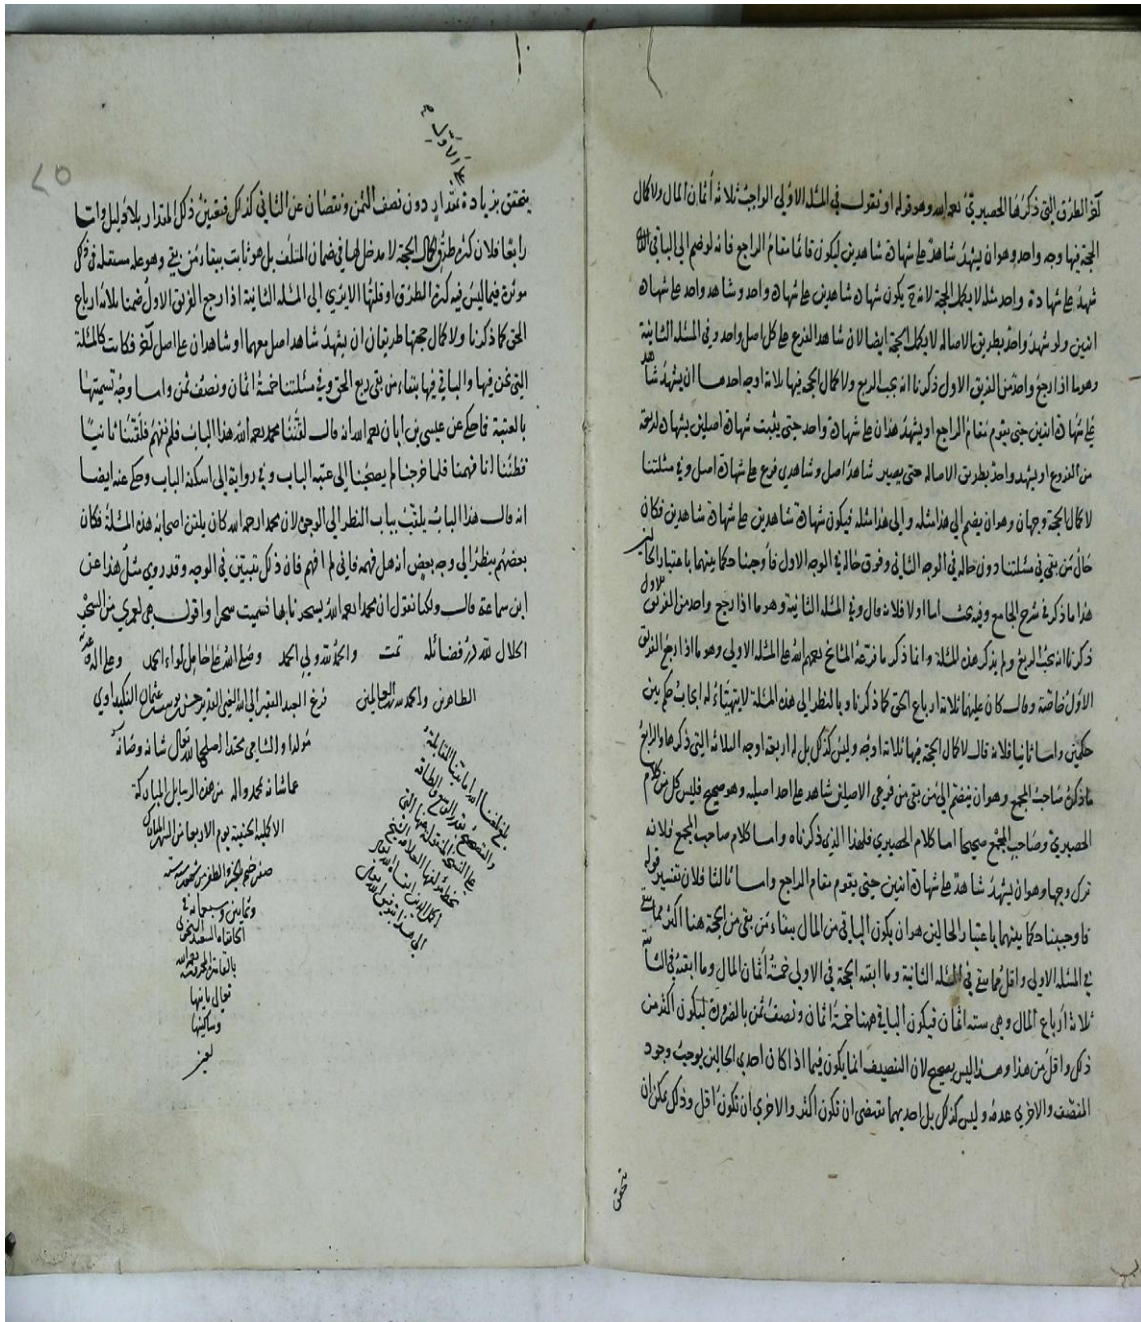 آخر الطرق التي ذكرها الحصيري رحمه الله وهو قوله او نقول في المسئلة الاولى الواجب ثلاثة أثمان المال ولاكمال
الحجة فيها وجه واحد وهو ان يشهد شاهد على شهادة شاهدين ليكون قائما مقام الراجع فانه لو ضم الى الباقي
شهد على شهادة واحد مثله لا يكمل الحجة لانه ح يكون شهادة شاهدين على شهادة واحد وشاهد واحد على شهادة
اثنين ولو شهد واحد بطريق الاصالة لا يكمل الحجة ايضا لان شاهد الفرع على كل اصل واحد وفي المسئلة الثانية
وهو ما اذا رجع واحد من الفريق الاول ذكرنا انه يجب الربع ولاكمال الحجة فيها ثلاثة اوجه احدها ان يشهد شاهد
على شهادة اثنين حتى يقوم مقام الراجع او يشهد هذان على شهادة واحد حتى يثبت شهادة اصلين بشهادة اربعة
من الفروع او يشهد واحد بطريق الاصالة حتى يصير شاهد اصل وشاهدي فرع على شهادة اصل وفي مسئلتنا
لاكمال الحجة وجهان وهو ان يضم الى هذا مثله والى هذا مثله فيكون شهادة شاهدين على شهادة شاهدين فكان
حال من بقي في مسئلتنا دون حاله في الوجه الثاني وفوق حاله في الوجه الاول فأوجبنا حكما بينهما باعتبار الحالين
هذا ما ذكر في شرح الجامع وفيه بحث اما اولا فلانه قال وفي المسئلة الثانية وهو ما اذا رجع واحد من الفريق الاول
ذكرنا انه يجب الربع ولم يذكر هذه المسئلة وانما ذكر ما فرعه المشايخ رحمهم الله على المسئلة الاولى وهو ما اذا رجع الفريق
الاول خاصة وقال كان عليهما ثلاثة ارباع الحق كما ذكرنا وبالنظر الى هذه المسئلة لا يتهيأ له ايجاب حكم بين
حكمين واما ثانيا فلانه قال لاكمال الحجة فيها ثلاثة اوجه وليس كذلك بل له اربعة اوجه الثلاثة التي ذكرها والرابع
ما ذكره صاحب المجمع وهو ان ينضم الى من بقي من فرعي الاصلين شاهد على احد اصليه وهو صحيح فليس كل من كلام
الحصيري وصاحب المجمع صحيحا اما كلام الحصيري فلهذا الذي ذكرناه واما كلام صاحب المجمع فلانه
ترك وجها وهو ان يشهد شاهد على شهادة اثنين حتى يقوم مقام الراجع واما ثالثا فلان تفسير قوله
فاوجبنا حكما بينهما باعتبار الحالين هو ان يكون الباقي من المال ببقاء من بقي من الحجة هنا اكثر مما بقي
في المسئلة الاولى واقل مما بقي في المسئلة الثانية وما ابقته الحجة في الاولى خمسة أثمان المال وما ابقته في الثانية
ثلاثة أرباع المال وهي ستة اثمان فيكون الباقي ههنا خمسة اثمان ونصف ثمن بالضرورة ليكون اكثر من
ذلك واقل من هذا وهذا ليس بصحيح لان التنصيف انما يكون فيما اذا كان احدى الحالين يوجب وجود
المنصف والاخرى عدمه وليس كذلك بل احديهما تقتضي ان تكون اكثر والاخرى ان تكون اقل وذلك يمكن ان
تحقق
على الاول
يتحقق بزيادة مقدار دون نصف الثمن ونقصان عن الثاني كذلك فتعيين ذلك المقدار بلا دليل واما
رابعا فلان كثرة طرق اكمال الحجة لا مدخل لها في ضمان المتلف بل هو ثابت ببقاء من بقي وهو علة مستقلة في ذلك
مؤثرة فيما ليس فيه كثرة الطرق او قلتها الا يرى الى المسئلة الثانية اذا رجع الفريق الاول ضمنا ثلاثة ارباع
الحق كما ذكرنا ولاكمال حجتها طريقان ان يشهد شاهد اصل معهما او شاهدان على اصل آخر فكانت كالمسئلة
التي نحن فيها والباقي فيها ببقاء من بقي ربع الحق وفي مسئلتنا خمسة اثمان ونصف ثمن واما وجه تسميتها
بالعتبة فما حكي عن عيسى بن أبان رحمه الله انه قال لقننا محمد رحمه الله هذا الباب فلم نفهم فلقننا ثانيا
فظننا انا فهمنا فلما خرجنا لم يصحبنا الى عتبة الباب وفي رواية الى اسكفة الباب وحكي عنه ايضا
انه قال هذا الباب يلقب بباب النظر الى الوجه لان محمدا رحمه الله كان يلقن اصحابه هذه المسئلة فكان
بعضهم ينظر الى وجه بعض انه هل فهمه فاني لم افهم فان ذلك تبين في الوجه وقد روي مثل هذا عن
ابن سماعة قال ولكنا نقول ان محمدا رحمه الله يسحرنا بها فسميت سحرا واقول هي لعمري من السحر
الحلال لله در فضائله تمت والحمد لله ولي الحمد وصلى الله على حامل لواء الحمد وعلى اله وعترته
الطاهرين والحمد لله رب العالمين فرغ العبد الفقير الى الله الغني القدير حسن بن يوسف بن عثمان
مولدا والشامي محتدا اصلح الله تعالى شانه وصانه
عما شانه بمحمد واله من هذه الرسايل المباركة
الاكملية الحنفية يوم الاربعا من الشهر المبارك
صفر ختم بالخير والظفر من شهور سنة
وثمانين وسبعمائة
بالقاهرة المحروسة
تعالى بانيها
وساكنيها
بلغ